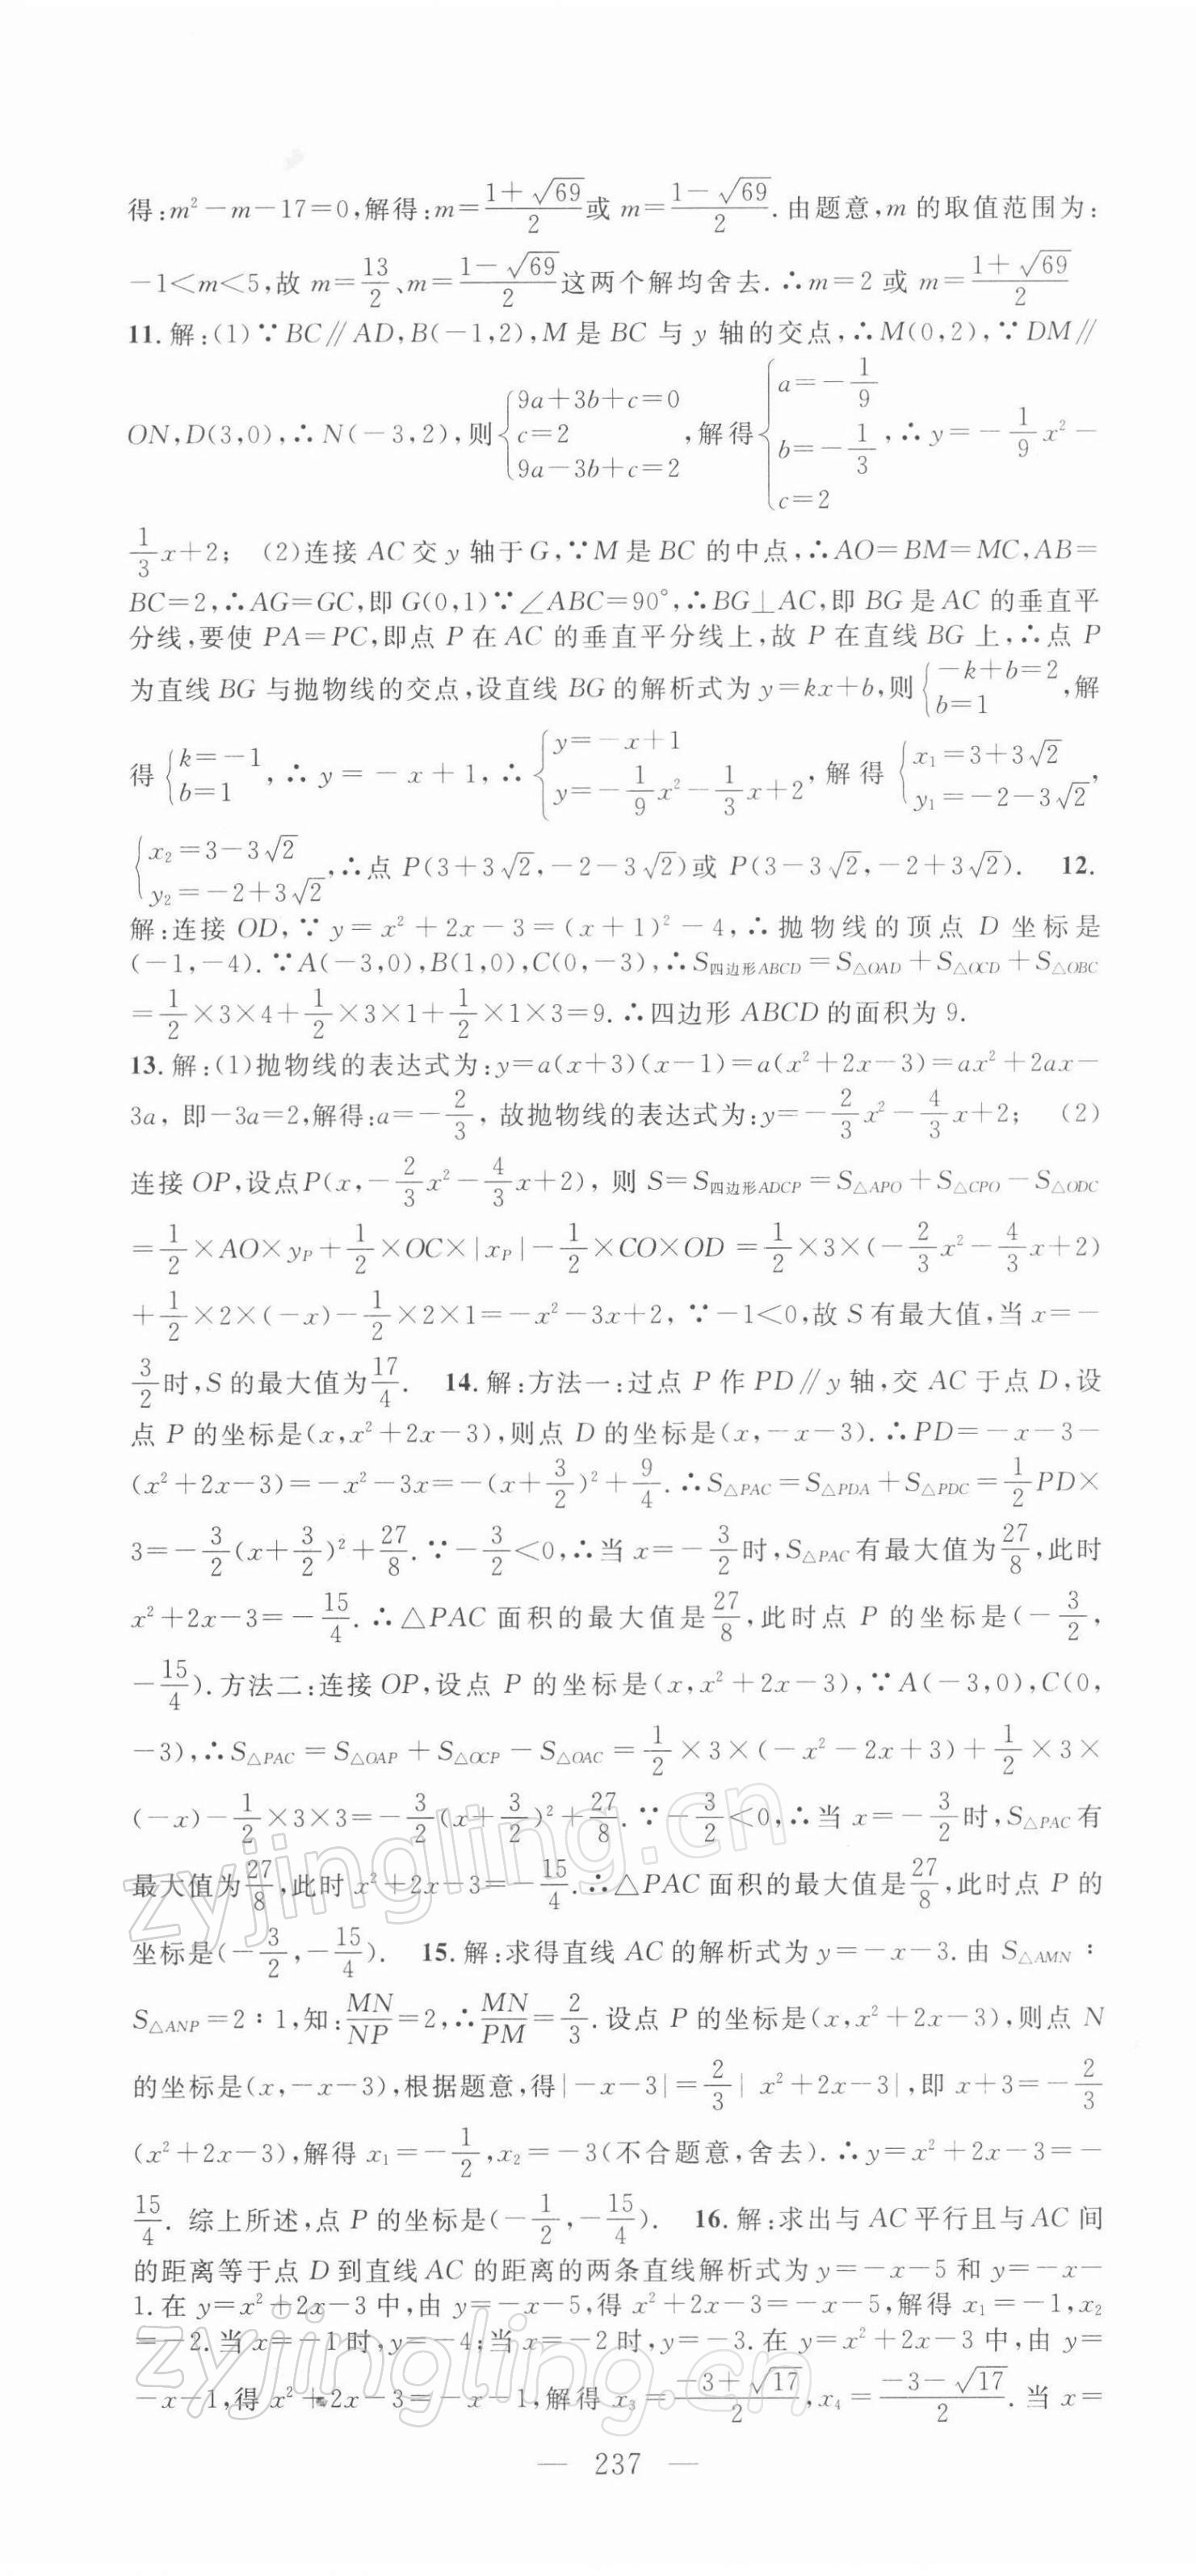 得:m²-m-17=0,解得:m=\frac{1+\sqrt{69}}{2}或 m=\frac{1-\sqrt{69}}{2}.由题意,m 的取值范围为:
-1<m<5,故 m=\frac{13}{2}、m=\frac{1-\sqrt{69}}{2}这两个解均舍去.∴m=2 或 m=\frac{1+\sqrt{69}}{2}
11.解:(1)∵BC∥AD,B(-1,2),M 是 BC 与 y 轴的交点,∴M(0,2),∵DM∥
ON,D(3,0),∴N(-3,2),则\begin{cases}9a+3b+c=0\\c=2\\9a-3b+c=2\end{cases},解得\begin{cases}a=-\frac{1}{9}\\b=-\frac{1}{3}\\c=2\end{cases},∴y=-\frac{1}{9}x²-
\frac{1}{3}x+2; (2)连接 AC 交 y 轴于 G,∵M 是 BC 的中点,∴AO=BM=MC,AB=
BC=2,∴AG=GC,即 G(0,1)∵∠ABC=90°,∴BG⊥AC,即 BG 是 AC 的垂直平
分线,要使 PA=PC,即点 P 在 AC 的垂直平分线上,故 P 在直线 BG 上,∴点 P
为直线 BG 与抛物线的交点,设直线 BG 的解析式为 y=kx+b,则\begin{cases}-k+b=2\\b=1\end{cases},解
得\begin{cases}k=-1\\b=1\end{cases},∴y=-x+1,∴\begin{cases}y=-x+1\\y=-\frac{1}{9}x²-\frac{1}{3}x+2\end{cases},解得\begin{cases}x₁=3+3\sqrt{2}\\y₁=-2-3\sqrt{2}\end{cases},
\begin{cases}x₂=3-3\sqrt{2}\\y₂=-2+3\sqrt{2}\end{cases},∴点 P(3+3\sqrt{2},-2-3\sqrt{2})或 P(3-3\sqrt{2},-2+3\sqrt{2}). 12.
解:连接 OD,∵y=x²+2x-3=(x+1)²-4,∴抛物线的顶点 D 坐标是
(-1,-4).∵A(-3,0),B(1,0),C(0,-3),∴S四边形ABCD=S△OAD+S△OCD+S△OBC
=\frac{1}{2}×3×4+\frac{1}{2}×3×1+\frac{1}{2}×1×3=9.∴四边形 ABCD 的面积为 9.
13.解:(1)抛物线的表达式为:y=a(x+3)(x-1)=a(x²+2x-3)=ax²+2ax-
3a, 即-3a=2,解得:a=-\frac{2}{3}, 故抛物线的表达式为:y=-\frac{2}{3}x²-\frac{4}{3}x+2; (2)
连接 OP,设点P(x,-\frac{2}{3}x²-\frac{4}{3}x+2), 则 S=S四边形ADCP=S△APO+S△CPO-S△ODC
=\frac{1}{2}×AO×y_P+\frac{1}{2}×OC×|x_P|-\frac{1}{2}×CO×OD=\frac{1}{2}×3×(-\frac{2}{3}x²-\frac{4}{3}x+2)
+\frac{1}{2}×2×(-x)-\frac{1}{2}×2×1=-x²-3x+2, ∵-1<0,故 S 有最大值,当 x=-
\frac{3}{2}时,S 的最大值为\frac{17}{4}. 14.解:方法一:过点 P 作 PD∥y 轴,交 AC 于点 D,设
点 P 的坐标是(x,x²+2x-3),则点 D 的坐标是(x,-x-3).∴PD=-x-3-
(x²+2x-3)=-x²-3x=-(x+\frac{3}{2})²+\frac{9}{4}.∴S△PAC=S△PDA+S△PDC=\frac{1}{2}PD×
3=-\frac{3}{2}(x+\frac{3}{2})²+\frac{27}{8}.∵-\frac{3}{2}<0,∴当 x=-\frac{3}{2}时,S△PAC有最大值为\frac{27}{8},此时
x²+2x-3=-\frac{15}{4}.∴△PAC 面积的最大值是\frac{27}{8},此时点 P 的坐标是(-\frac{3}{2},
-\frac{15}{4}).方法二:连接 OP,设点 P 的坐标是(x,x²+2x-3),∵A(-3,0),C(0,
-3),∴S△PAC=S△OAP+S△OCP-S△OAC=\frac{1}{2}×3×(-x²-2x+3)+\frac{1}{2}×3×
(-x)-\frac{1}{2}×3×3=-\frac{3}{2}(x+\frac{3}{2})²+\frac{27}{8}.∵-\frac{3}{2}<0,∴当 x=-\frac{3}{2}时,S△PAC有
最大值为\frac{27}{8},此时 x²+2x-3=-\frac{15}{4}.∴△PAC 面积的最大值是\frac{27}{8},此时点 P 的
坐标是(-\frac{3}{2},-\frac{15}{4}). 15.解:求得直线 AC 的解析式为 y=-x-3.由 S△AMN:
S△ANP=2:1,知:\frac{MN}{NP}=2,∴\frac{MN}{PM}=\frac{2}{3}.设点 P 的坐标是(x,x²+2x-3),则点 N
的坐标是(x,-x-3),根据题意,得|-x-3|=\frac{2}{3}|x²+2x-3|,即 x+3=-\frac{2}{3}
(x²+2x-3),解得 x₁=-\frac{1}{2},x₂=-3(不合题意,舍去).∴y=x²+2x-3=-
\frac{15}{4}. 综上所述,点 P 的坐标是(-\frac{1}{2},-\frac{15}{4}). 16.解:求出与 AC 平行且与 AC 间
的距离等于点 D 到直线 AC 的距离的两条直线解析式为 y=-x-5 和 y=-x-
1.在 y=x²+2x-3 中,由 y=-x-5,得 x²+2x-3=-x-5,解得 x₁=-1,x₂
=-2.当 x=-1 时,y=-4;当 x=-2 时,y=-3.在 y=x²+2x-3 中,由 y=
-x-1,得 x²+2x-3=-x-1,解得 x₃=\frac{-3+\sqrt{17}}{2},x₄=\frac{-3-\sqrt{17}}{2}.当 x=
— 237 —
zyjingling.cn
zyjingling.cn